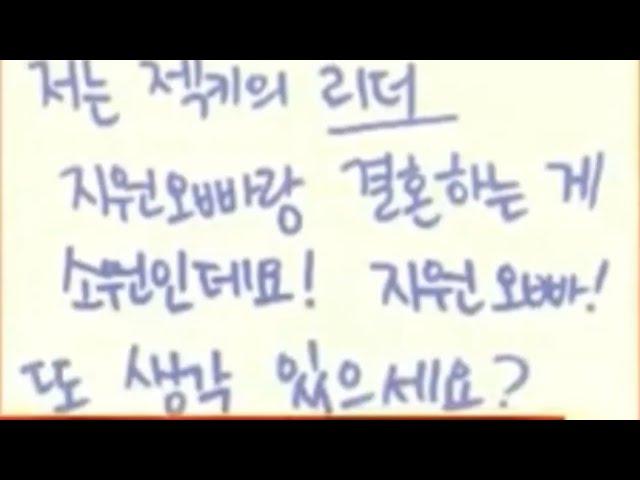 저는 젝키의 리더
지원오빠랑 결혼하는 게
소원인데요! 지원오빠!
또 생각 있으세요?